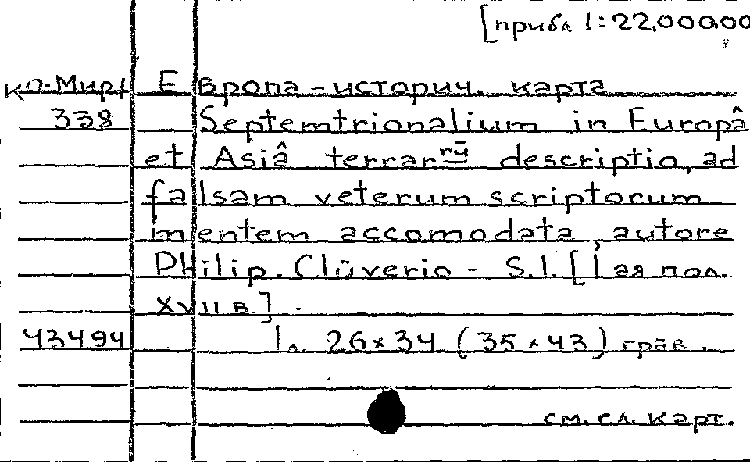 [прибл 1:22.000.00
Ко-Мир/ Европа - историч. карта
338 Septemtrionalium in Europâ
et Asiâ terrarrũ descriptio, ad
falsam veterum scriptorum
mentem accomodata, autore
Philip. Clüverio - S.l. [1 ая пол.
XVII в.]
43494 1 л. 26 x 34 (35 x 43) грав.
см. сл. карт.